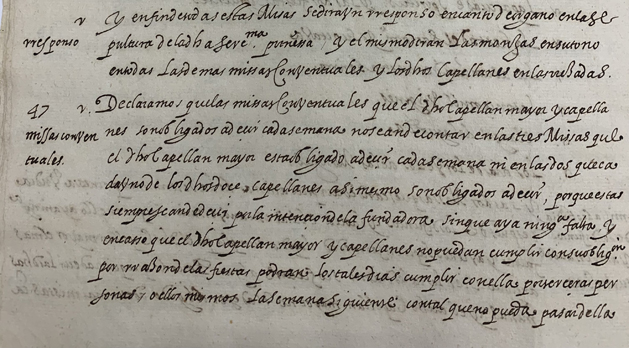 v Y en fin de todas estas Missas se dira Un rresponso en canto de organo en la se
rresponso pultura de la dha sere.ma prinsesa, y el mismo diran las monjas en su tono
en todas las demas missas Conventuales y los dhos Capellanes en las rresadas.
47 v. Declaramos que las missas Conventuales que el dho Capellan mayor y capella
missas conven nes son obligados a decir cada semana no se an de contar en las tres Missas que
tuales. el dho Capellan mayor esta obligado a decir cada semana ni en las dos que ca
da uno de los dhos doce capellanes asi mismo son obligados a decir, porque estas
siempre se an de decir por la intencion de la fundadora sin que aya ning.a falta, y
en caso que el dho Capellan mayor y capellanes no puedan cumplir con su oblig.on
por rrahon de las fiestas podran los tales dias cumplir con ella por terceras per
sonas, o ellos mismos la semana siguiente con tal que no pueda pasar de ella